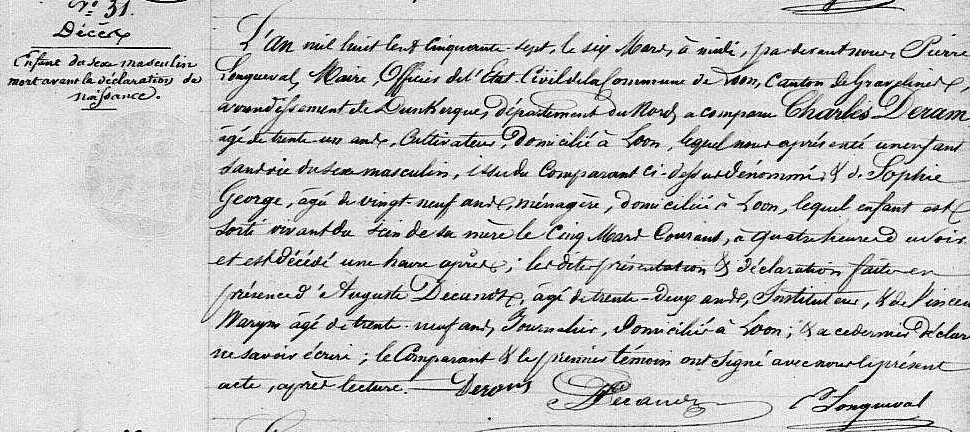 N° 31.
Décès
Enfant du sexe masculin
mort avant la déclaration de
naissance.
L'An mil huit cent cinquante-sept, le six Mars, à midi, pardevant nous, Pierre
Longueval, Maire, Officier de l'Etat Civil de la Commune de Loon, Canton de Gravelines,
arrondissement de Dunkerque, département du Nord, a comparu Charles Deram
âgé de trente-un ans, Cultivateur, domicilié à Loon, lequel nous a présenté un enfant
sans vie du sexe masculin, issu du Comparant ci-dessus dénommé, & de Sophie
George, âgée de vingt-neuf ans, ménagère, domiciliée à Loon, lequel enfant est
sorti vivant du sein de sa mère le Cinq Mars Courant, à quatre heures du soir
et est décédé une heure après ; les dites présentation & déclaration faites en
présence d'Auguste , âgé de trente-deux ans, Instituteur, & de Vincent
âgé de trente-neuf ans, Journalier, domiciliés à Loon ; & a ce dernier déclaré
ne savoir écrire ; le Comparant & le premier témoin ont signé avec nous le présent
acte, après lecture.
Longueval